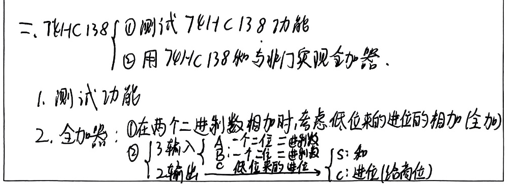 二、74HC138 ①测试74HC138功能
②用74HC138和与非门实现全加器.
1. 测试功能
2. 全加器：①在两个二进制数相加时,考虑低位来的进位的相加(全加)
② 3输入 A 一个二位二进制数
B: 一个二位二进制数
C 低位来的进位
2输出 S: 和
C: 进位(给高位)